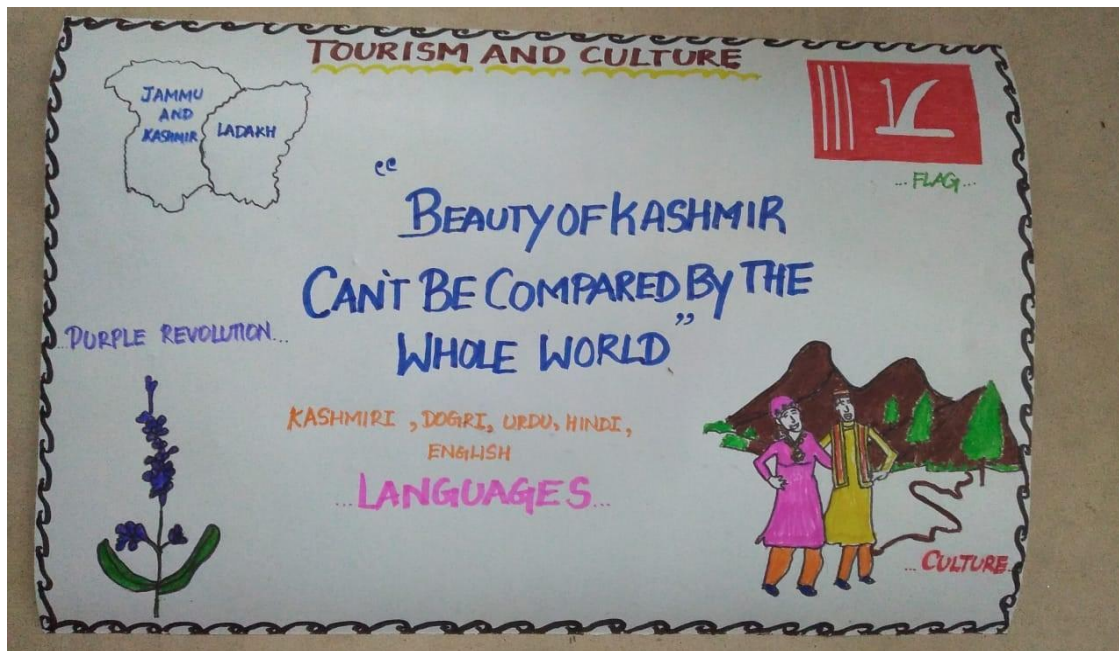 TOURISM AND CULTURE
JAMMU
AND
KASHMIR
LADAKH
...FLAG...
"BEAUTY OF KASHMIR
CAN'T BE COMPARED BY THE
WHOLE WORLD"
...PURPLE REVOLUTION...
KASHMIRI, DOGRI, URDU, HINDI,
ENGLISH
...LANGUAGES...
...CULTURE...